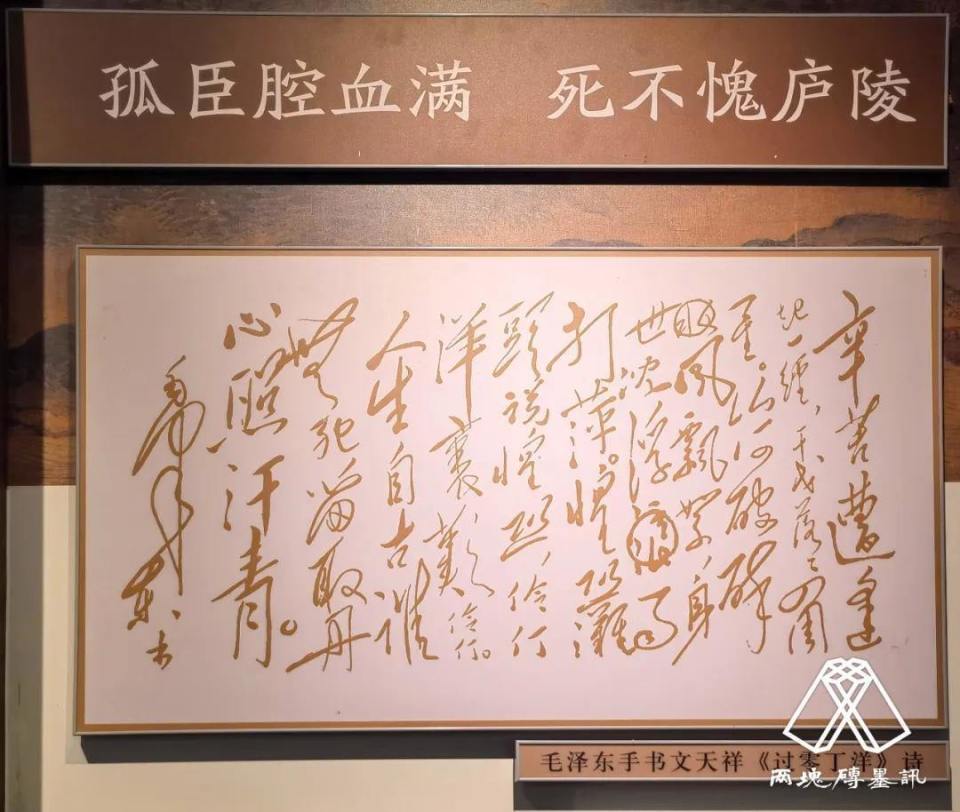 孤臣腔血满 死不愧庐陵
辛苦遭逢
起一經，干戈落々四周
星。山河破碎
风飄絮，身
世沈浮雨
打萍。惶恐灘
頭説惶恐，伶仃
洋裏歎伶仃。
人生自古誰
無死留取丹
心照汗青。
毛泽东
毛泽东手书文天祥《过零丁洋》诗
两塊磚墨訊